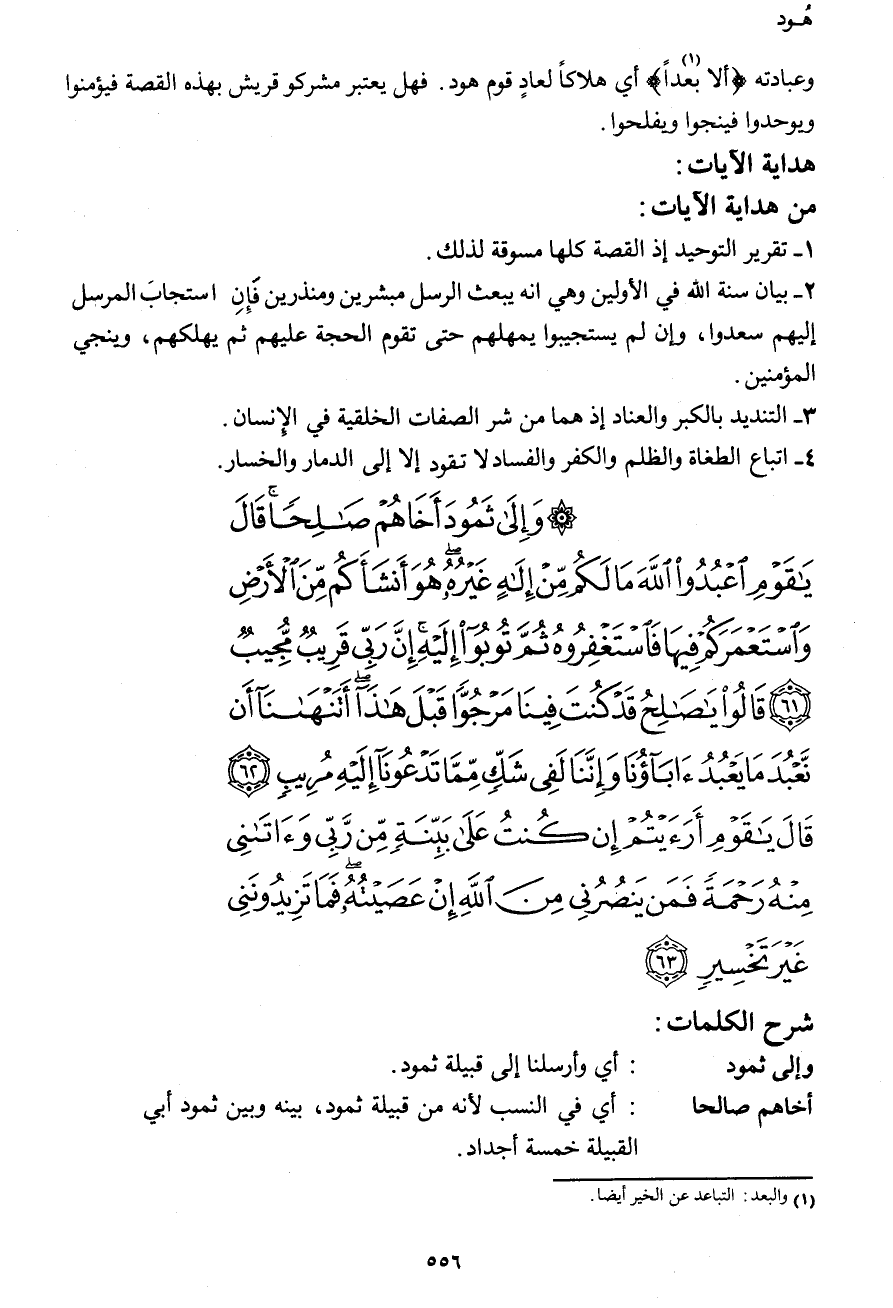 هُـود
وعبادته ﴿ألا بعداً﴾(١) أي هلاكاً لعادٍ قوم هود. فهل يعتبر مشركو قريش بهذه القصة فيؤمنوا
ويوحدوا فينجوا ويفلحوا.
هداية الآيات:
من هداية الآيات:
١ـ تقرير التوحيد إذ القصة كلها مسوقة لذلك.
٢ـ بيان سنة الله في الأولين وهي انه يبعث الرسل مبشرين ومنذرين فَإِنِ استجابَ المرسل
إليهم سعدوا، وإن لم يستجيبوا يمهلهم حتى تقوم الحجة عليهم ثم يهلكهم، وينجي
المؤمنين.
٣ـ التنديد بالكبر والعناد إذ هما من شر الصفات الخلقية في الإنسان.
٤ـ اتباع الطغاة والظلم والكفر والفساد لا تقود إلا إلى الدمار والخسار.
۞ وَإِلَىٰ ثَمُودَ أَخَاهُمْ صَٰلِحًاۚ قَالَ
يَٰقَوْمِ ٱعْبُدُوا۟ ٱللَّهَ مَا لَكُم مِّنْ إِلَٰهٍ غَيْرُهُۥۖ هُوَ أَنشَأَكُم مِّنَ ٱلْأَرْضِ
وَٱسْتَعْمَرَكُمْ فِيهَا فَٱسْتَغْفِرُوهُ ثُمَّ تُوبُوٓا۟ إِلَيْهِۚ إِنَّ رَبِّى قَرِيبٌ مُّجِيبٌ
٦١ قَالُوا۟ يَٰصَٰلِحُ قَدْ كُنتَ فِينَا مَرْجُوًّا قَبْلَ هَٰذَآۖ أَتَنْهَىٰنَآ أَن
نَّعْبُدَ مَا يَعْبُدُ ءَابَآؤُنَا وَإِنَّنَا لَفِى شَكٍّ مِّمَّا تَدْعُونَآ إِلَيْهِ مُرِيبٍ ٦٢
قَالَ يَٰقَوْمِ أَرَءَيْتُمْ إِن كُنتُ عَلَىٰ بَيِّنَةٍ مِّن رَّبِّى وَءَاتَىٰنِى
مِنْهُ رَحْمَةً فَمَن يَنصُرُنِى مِنَ ٱللَّهِ إِنْ عَصَيْتُهُۥۖ فَمَا تَزِيدُونَنِى
غَيْرَ تَخْسِيرٍ ٦٣
شرح الكلمات:
وإلى ثمود : أي وأرسلنا إلى قبيلة ثمود.
أخاهم صالحا : أي في النسب لأنه من قبيلة ثمود، بينه وبين ثمود أبي
القبيلة خمسة أجداد.
(١) والبعد: التباعد عن الخير أيضا.
٥٥٦